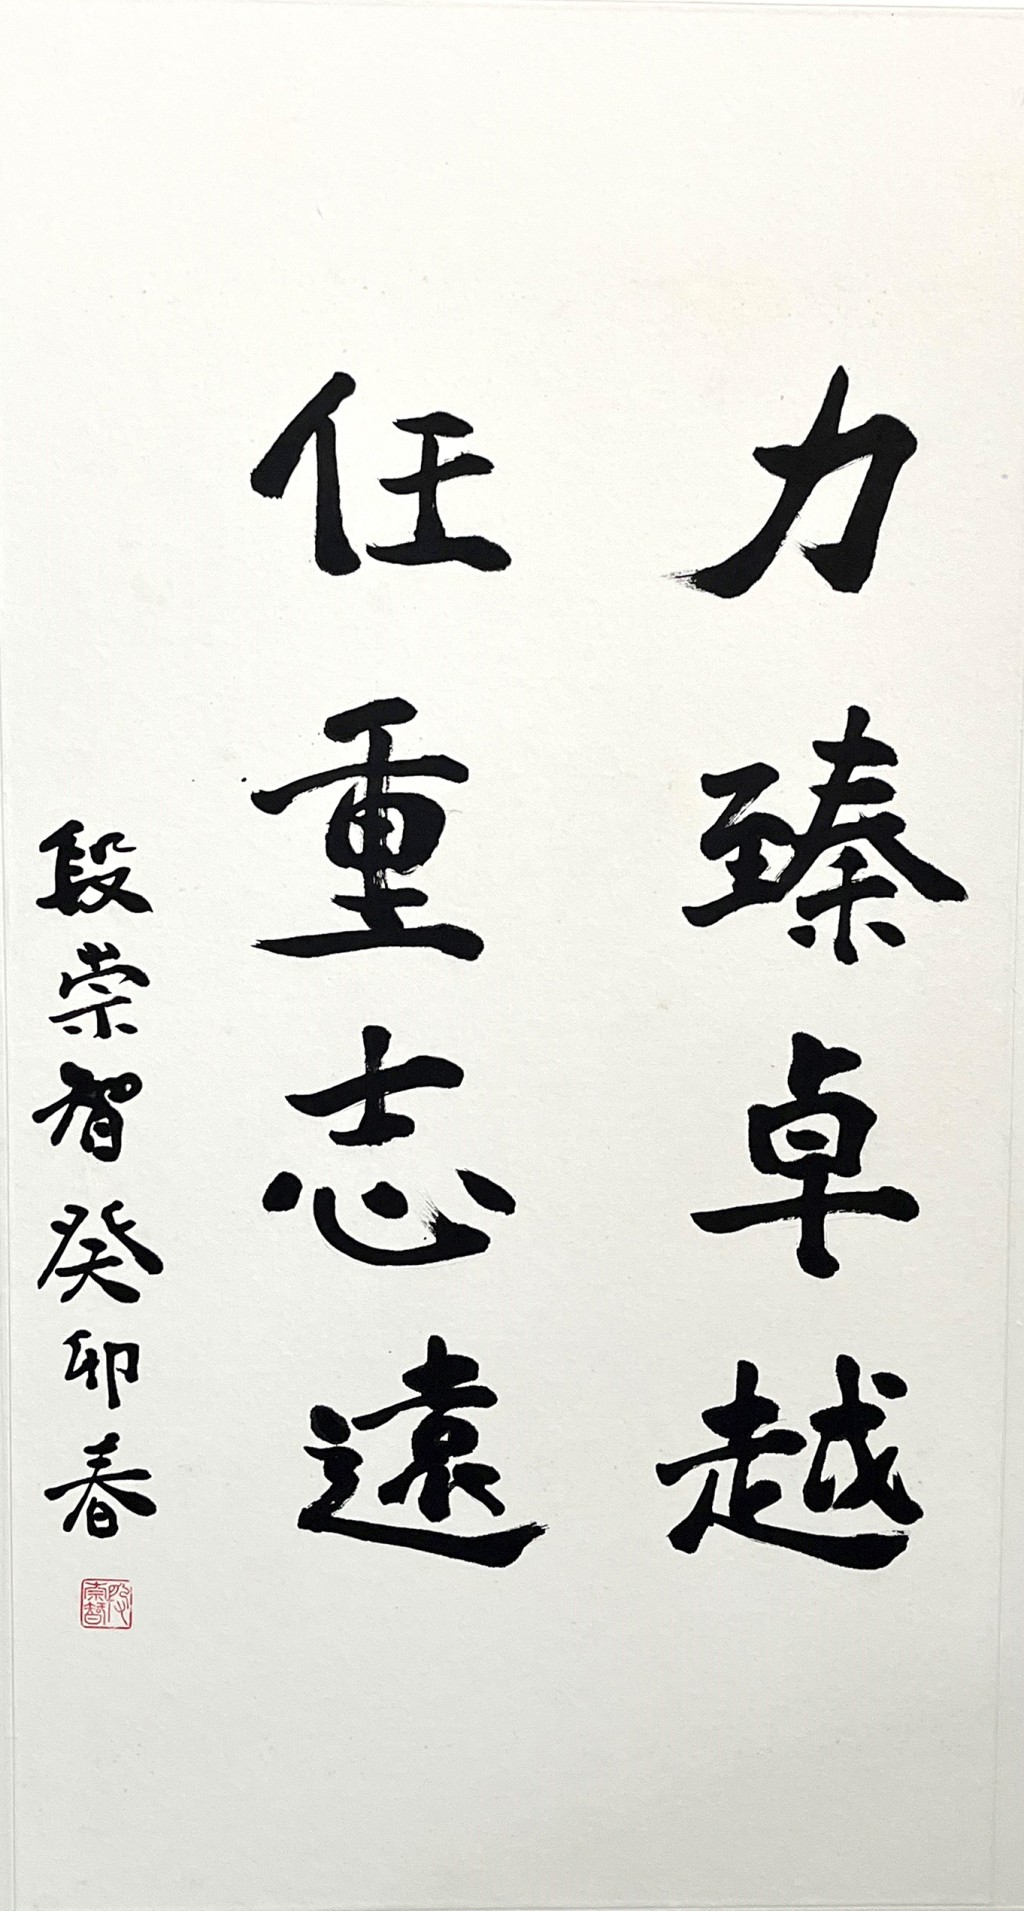 力臻卓越
任重志遠
段崇智癸卯春
段崇智